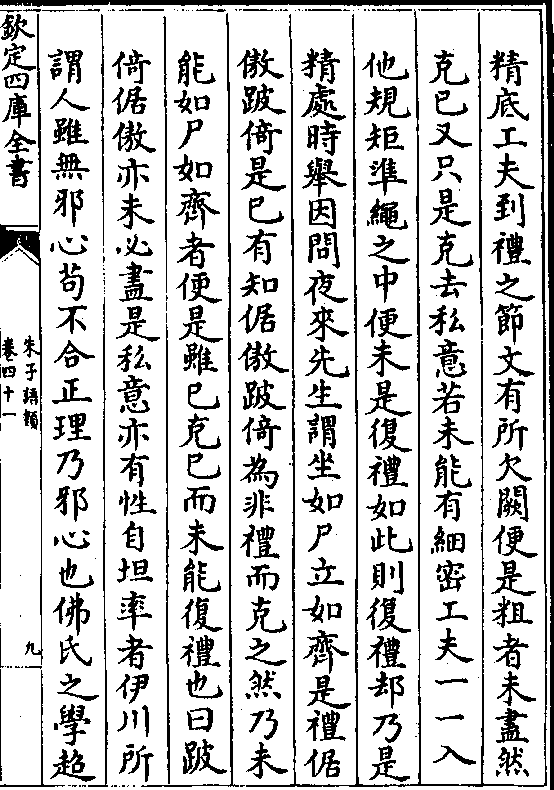 精底工夫到禮之節文有所欠闕便是粗者未盡然
克巳又只是克去私意若未能有細密工夫一一入
他規矩準繩之中便未是復禮如此則復禮却乃是
精處時舉因問夜來先生謂坐如尸立如齊是禮倨
傲跛倚是巳有知倨傲跛倚為非禮而克之然乃未
能如尸如齊者便是雖巳克巳而未能復禮也曰跛
倚倨傲亦未必盡是私意亦有性自坦率者伊川所
謂人雖無邪心苟不合正理乃邪心也佛氏之學超
欽定四庫全書
朱子語類
卷四十一
九